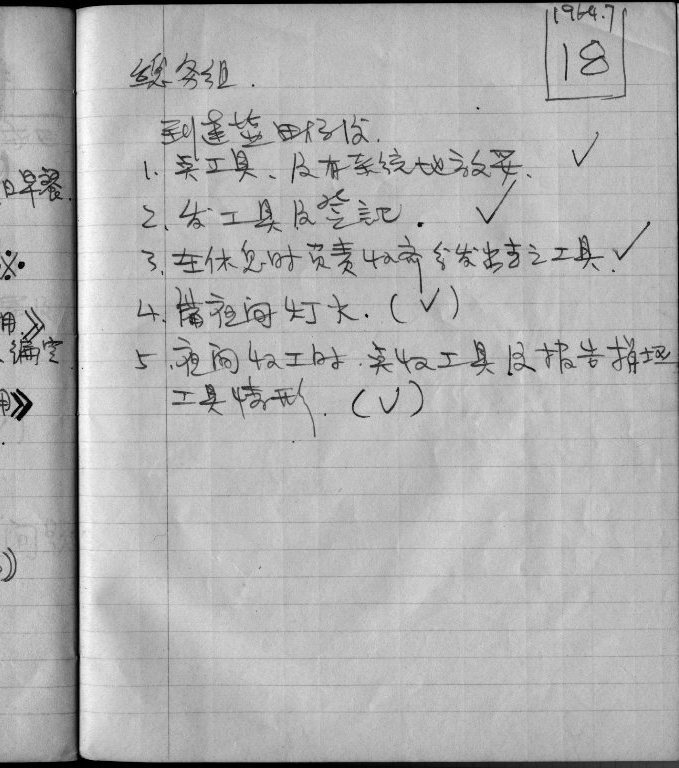 1964.7
18
總务组.
到達营田行後.
1. 卖工具、及有系统地放妥. ✓
2. 发工具及登記. ✓
3. 在休息时负责收齐分发出去之工具. ✓
4. 借夜间灯火. (✓)
5. 夜间收工时. 点收工具及报告损坏
工具情形. (✓)
日早餐.
※.
用》
编定
用》